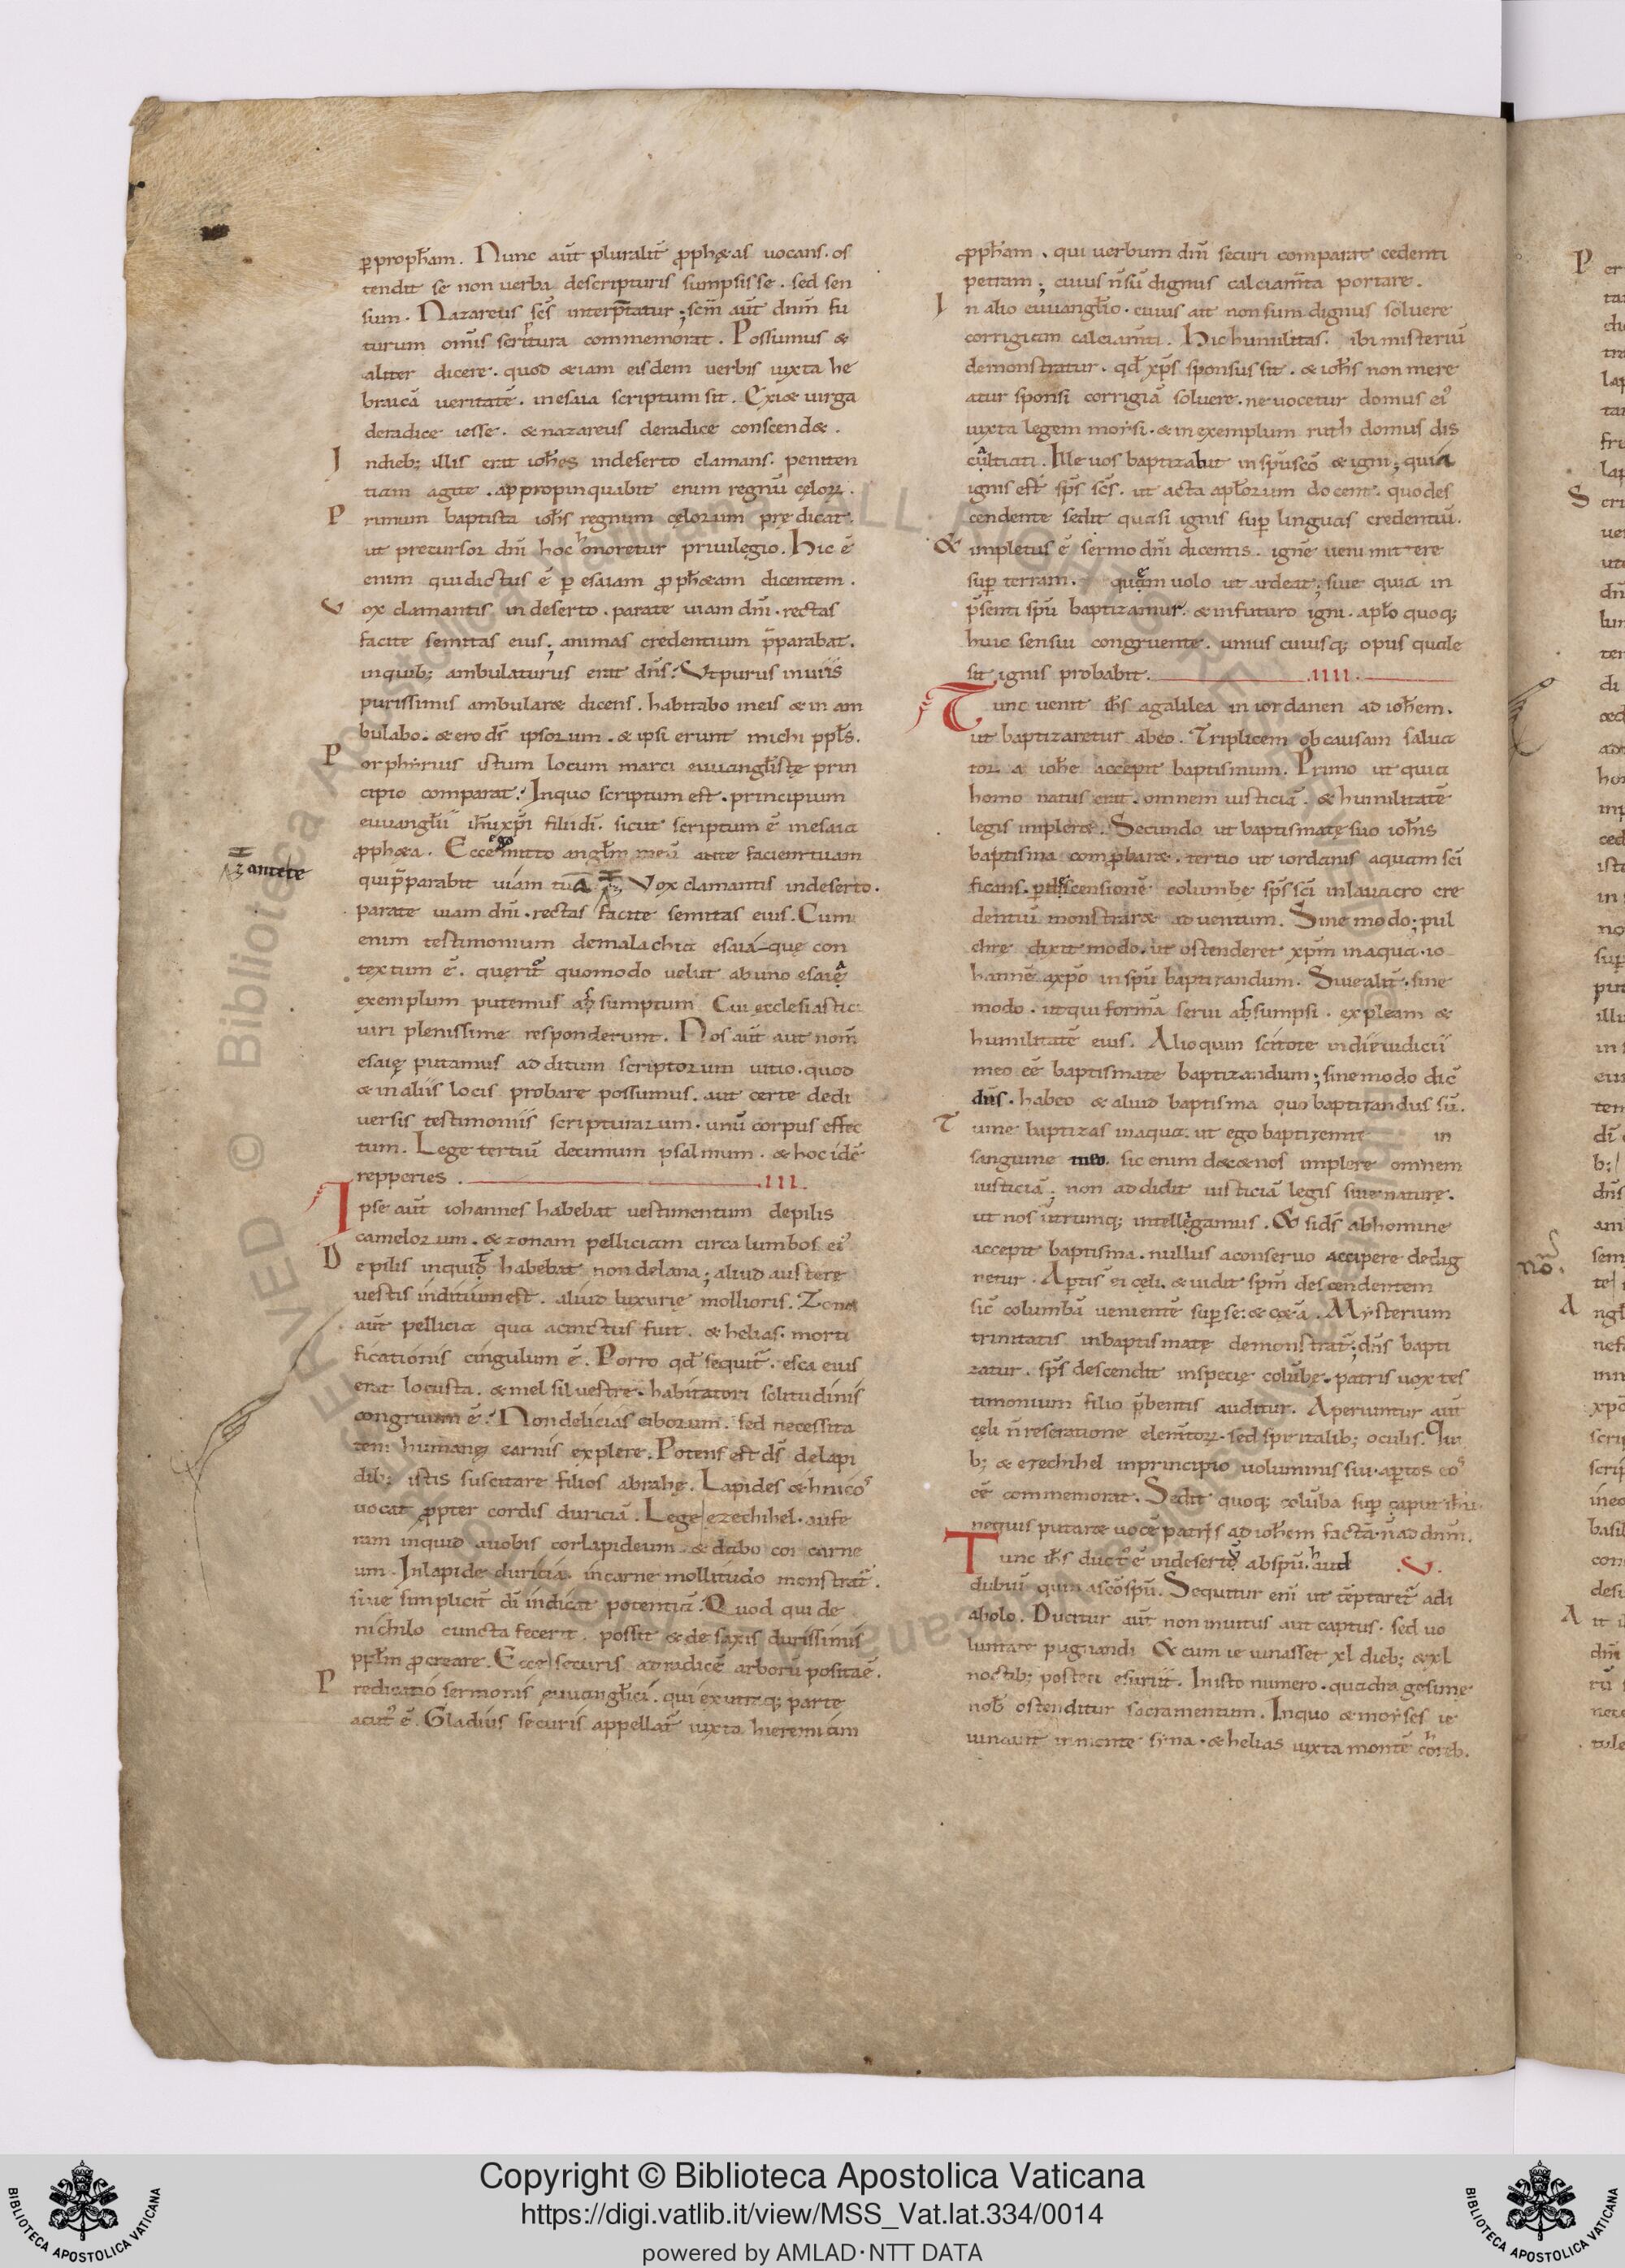 ꝑproph̄am. Nunc aūt pluralit̄ ꝓphęas uocans. os
tendit se non uerba descripturis sumpsisse. sed sen
sum. Nazareus sc̄s interp̄tatur; sc̄m aūt dnm̄ fu
turum om̄is scriptura commemorat. Possumus &
aliter dicere. quod &iam eisdem uerbis iuxta he
braicā ueritatē. inesaia scriptum sit. Exi& uirga
deradice iesse. & nazareus deradice conscend&.
Indieb; illis erat ioh̄es indeserto clamans. peniten
tiam agite. appropinquabit enim regnū cęloꝝ.
Primum baptista ioh̄s regnum cęlorum prędicat.
ut precursor dn̄i hoc honoretur priuilegio. Hic ē
enim quidictus ē ꝑ esaiam ꝓph&am dicentem.
Vox clamantis indeserto. parate uiam dn̄i. rectas
facite semitas eius; animas credentium p̄parabat.
inquib; ambulaturus erat dn̄s. Vtpurus inuiis
purissimis ambular& dicens. habitabo ineis & in am
bulabo. & ero ds̄ ipsorum. & ipsi erunt michi ppl̄s.
Porphirius istum locum marci euuangl̄istę prin
cipio comparat. Inquo scriptum est. principium
euuangl̄ii ih̄uxp̄i filiidī. sicut scriptum ē inesaia
ꝓph&a. Ecce ego mitto angl̄m meū ante faciemtuam
quip̄parabit uiam tuā Vox clamantis indeserto.
ante te
parate uiam dn̄i. rectas facite semitas eius. Cum
enim testimonium demalachia esaiaque con
textum ē. querit̄ quomodo uelut abuno esaię
exemplum putemus assumptum. Cui ecclesiastic
uiri plenissime responderunt. Nos aūt aut nom̄
esaię putamus additum scriptorum uitio. quod
& inaliis locis probare possumus. aut certe dedi
uersis testimoniis scripturarum. unū corpus effec
tum. Lege tertiū decimum psalmum. & hoc idē
repperies. III.
Ipse aūt iohannes habebat uestimentum depilis
camelorum. & zonam pelliciam circa lumbos ei᾽
Depilis inquid habebat non delana; aliud austerę
uestis inditium est. aliud luxurię mollioris. Zona
aūt pellicia qua accinctus fuit. & helias. morti
ficationis cingulum ē. Porro qd̄ sequit̄. esca eius
erat locusta. & mel siluestre. habitatori solitudinis
congruum ē. Nondelicias ciborum. sed necessita
tem humanę carnis explere. Potens est ds̄ delapi
dib; istis suscitare filios abrahę. Lapides &hnicos
uocat ꝓpter cordis duriciā. Lege ezechihel. aufe
ram inquid auobis corlapideum & dabo cor carne
um. Inlapide duricia. incarne mollitudo monstrat̄.
siue simplicit̄ dī indicat potentiā. Quod qui de
nichilo cuncta fecerit. possit & de saxis durissimis
ppl̄m ꝓcreare. Ecce securis adradicē arborū positaē.
Predicatio sermonis euuangl̄ici. qui exutraq; parte
acut᾽ ē. Gladius securis appellat̄ iuxta hieremiam
ꝓph̄am. qui uerbum dn̄i securi comparat cedenti
petram; cuius n̄sū dignus calciam̄ta portare.
In alio euuangl̄io. cuius ait non sum dignus soluere
corrigiam calciam̄ti. Hic humilitas. ibi misteriū
demonstratur. qd̄ xp̄s sponsus sit. & ioh̄s non mere
atur sponsi corrigiā soluere. ne uocetur domus ei᾽
iuxta legem morsi. & in exemplum ruth domus dis
calciati. Ille uos baptizabit inspūscō & igni; quia
ignis est sp̄s sc̄s. ut acta apl̄orum docent. quodes
cendente sedit quasi ignis suꝑ linguas credentiū.
& impletus ē sermo dn̄i dicentis. ignē ueni mittere
suꝑ terram. quem uolo ut ardeat; siue quia in
p̄senti spū baptizamur. & infuturo igni. apl̄o quoq;
huic sensui congruente. unius cuiusq; opus quale
sit ignis probabit. IIII.
Tunc uenit ih̄s agalilea in iordanen ad ioh̄em.
ut baptizaretur abeo. Triplicem ob causam salua
tor a ioh̄e accepit baptismum. Primo ut quia
homo natus erat. omnem iusticiā. & humilitatē
legis impler&. Secundo ut baptismate suo ioh̄is
baptisma comprobar&. tertio ut iordanis aquam sc̄i
ficans. ꝑdescensionē columbę sp̄s sc̄i inlauacro cre
dentiū monstrar& aduentum. Sine modo; pul
chre dixit modo. ut ostenderet xp̄m inaqua. io
hannē axp̄o inspū baptizandum. Siuealit̄. sine
modo. utqui formā serui assumpsi. expleam &
humilitatē eius. Alioquin scitote indieiudicii
meo eē baptismate baptizandum; sinemodo dic̄
dn̄s. habeo & aliud baptisma quo baptizandus sū.
Tu me baptizas inaqua. ut ego baptizem te in
sanguine meo. sic enim dec&nos implere omnem
iusticiā; non addidit iusticiā legis siue naturę.
ut nos utrumq; intellegamus. & sids̄ abhomine
accepit baptisma. nullus aconseruo accipere dedig
netur. Aꝑtis̄ ei cęli. & uidit spm̄ descendentem
sic̄ columbā uenientē suꝑ se: & c&ā. Mysterium
trinitatis inbaptismate demonstrat̄; dn̄s bapti
zatur. sp̄s descendit inspecię colūbę. patris uox tes
timonium filio p̄bentis auditur. Aperiuntur aūt
cęli n̄ reseratione elem̄toꝝ. sed spiritalib; oculis. Qui
b; & ezechihel inprincipio uoluminis sui. aꝑtos eos
eē commemorat. Sedit quoq; colūba suꝑ caput ih̄u.
nequis putar& uocē patris ad ioh̄em factā. n̄ ad dnm̄.
Tunc ih̄s duct᾽ ē indesertū abspū. haud V.
dubiū quin ascōspū. Sequitur eni ut tēptaret̄ adi
abolo. Ducitur aūt non inuitus aut captus. sed uo
luntate pugnandi & cum ieiunasset xl dieb; & xl
noctib; postea esuriit. Inisto numero. quadragesime
nob̄ ostenditur sacramentum. Inquo & morses ie
iunauit inmonte syna. & helias iuxta montē choreb.
Copyright © Biblioteca Apostolica Vaticana
https://digi.vatlib.it/view/MSS_Vat.lat.334/0014
powered by AMLAD·NTT DATA
BIBLIOTECA APOSTOLICA VATICANA
BIBLIOTECA APOSTOLICA VATICANA